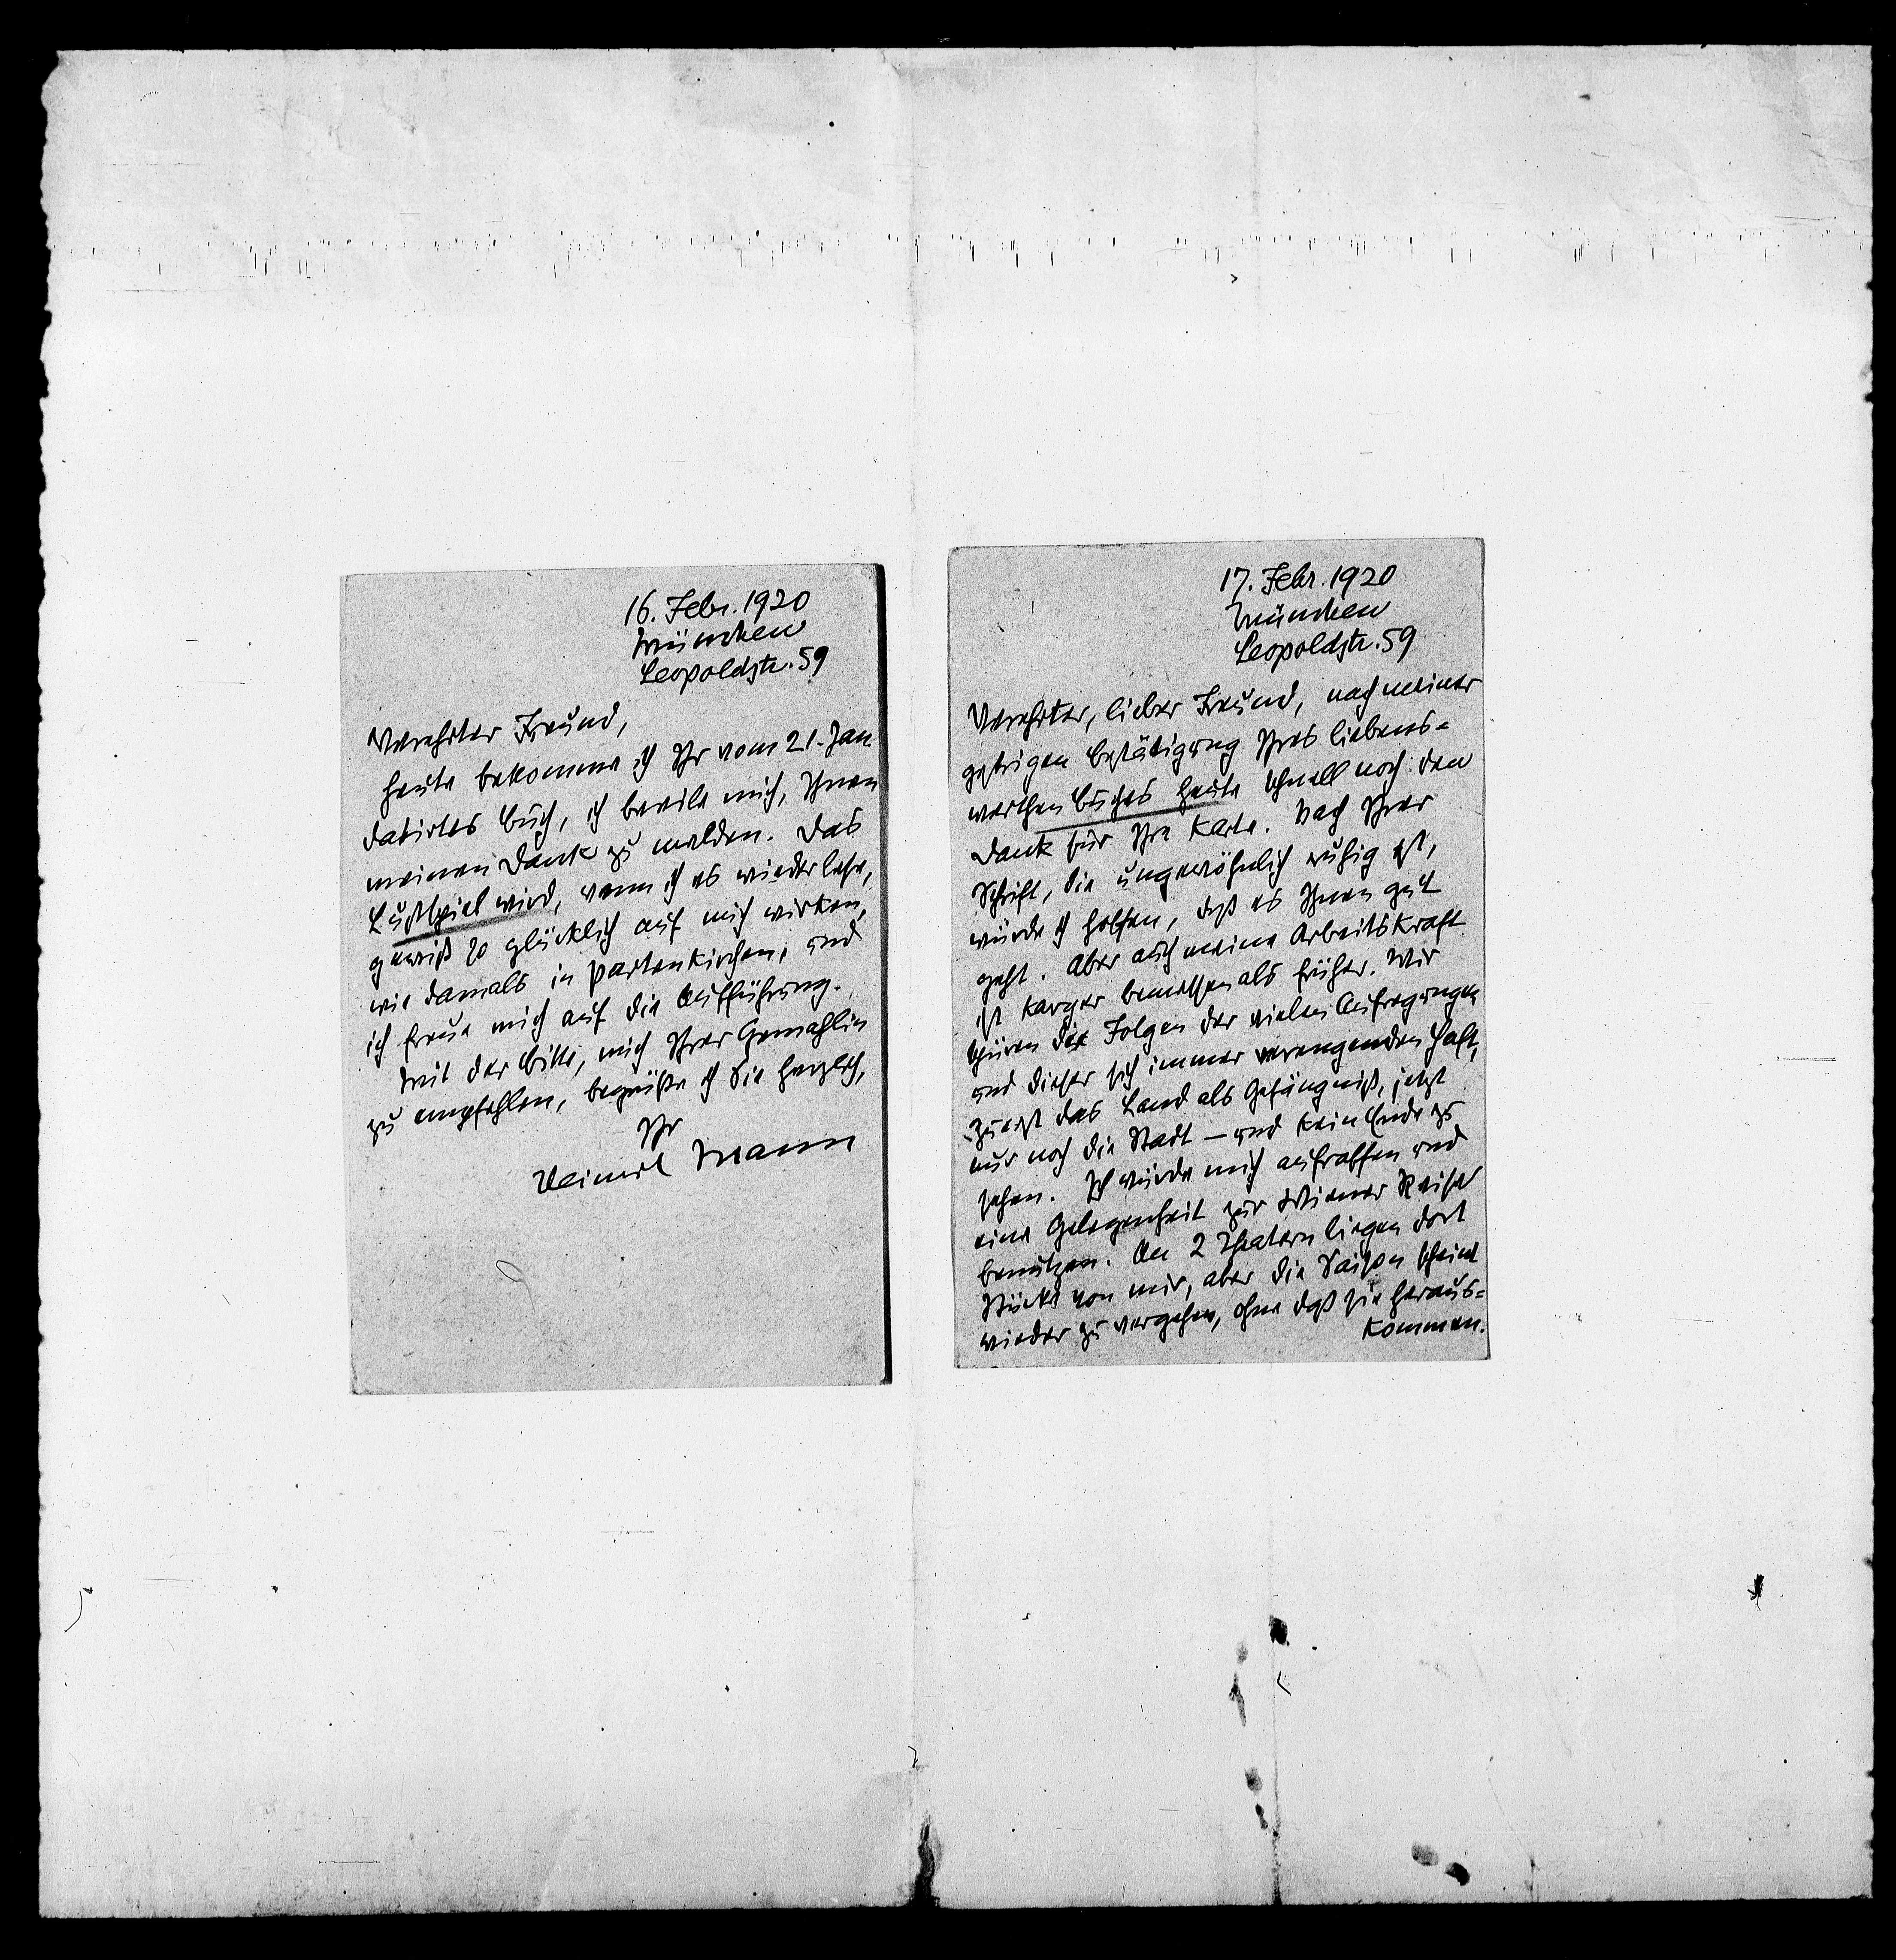 16. Febr. 1920
München
Leopoldstr. 59
Verehrter Freund,
heute bekomme ich Ihr vom 21. Jan.
datirtes Buch, ich beeile mich, Ihnen
meinen Dank zu melden. Das
Lustspiel wird, wenn ich es wiederlese,
gewiß so glücklich auf mich wirken,
wie damals in Partenkirchen, und
ich freue mich auf die Aufführung.
Mit der Bitte, mich Ihrer Gemahlin
zu empfehlen, begrüße ich Sie herzlich,
Ihr
Heinrich Mann
17. Febr. 1920
München
Leopoldstr. 59
Verehrter, lieber Freund, nach meiner
gestrigen Bestätigung Ihres liebens=
werthen Buches heute schnell noch den
Dank für Ihre Karte. Nach Ihrer
Schrift, die ungewöhnlich ruhig ist,
würde ich hoffen, daß es Ihnen gut
geht. Aber auch meine Arbeitskraft
ist karger bemessen als früher. Wir
spüren die Folgen der vielen Aufregungen
und dieser sich immer verengenden Haft,
zuerst das Land als Gefängniß, jetzt
nur noch die Stadt – und kein Ende zu
sehen. Ich würde mich aufraffen und
eine Gelegenheit zur Wiener Reise
benutzen. An 2 Theatern liegen dort
Stücke von mir, aber die Saison scheint
wieder zu vergehen, ohne daß sie heraus=
kommen.